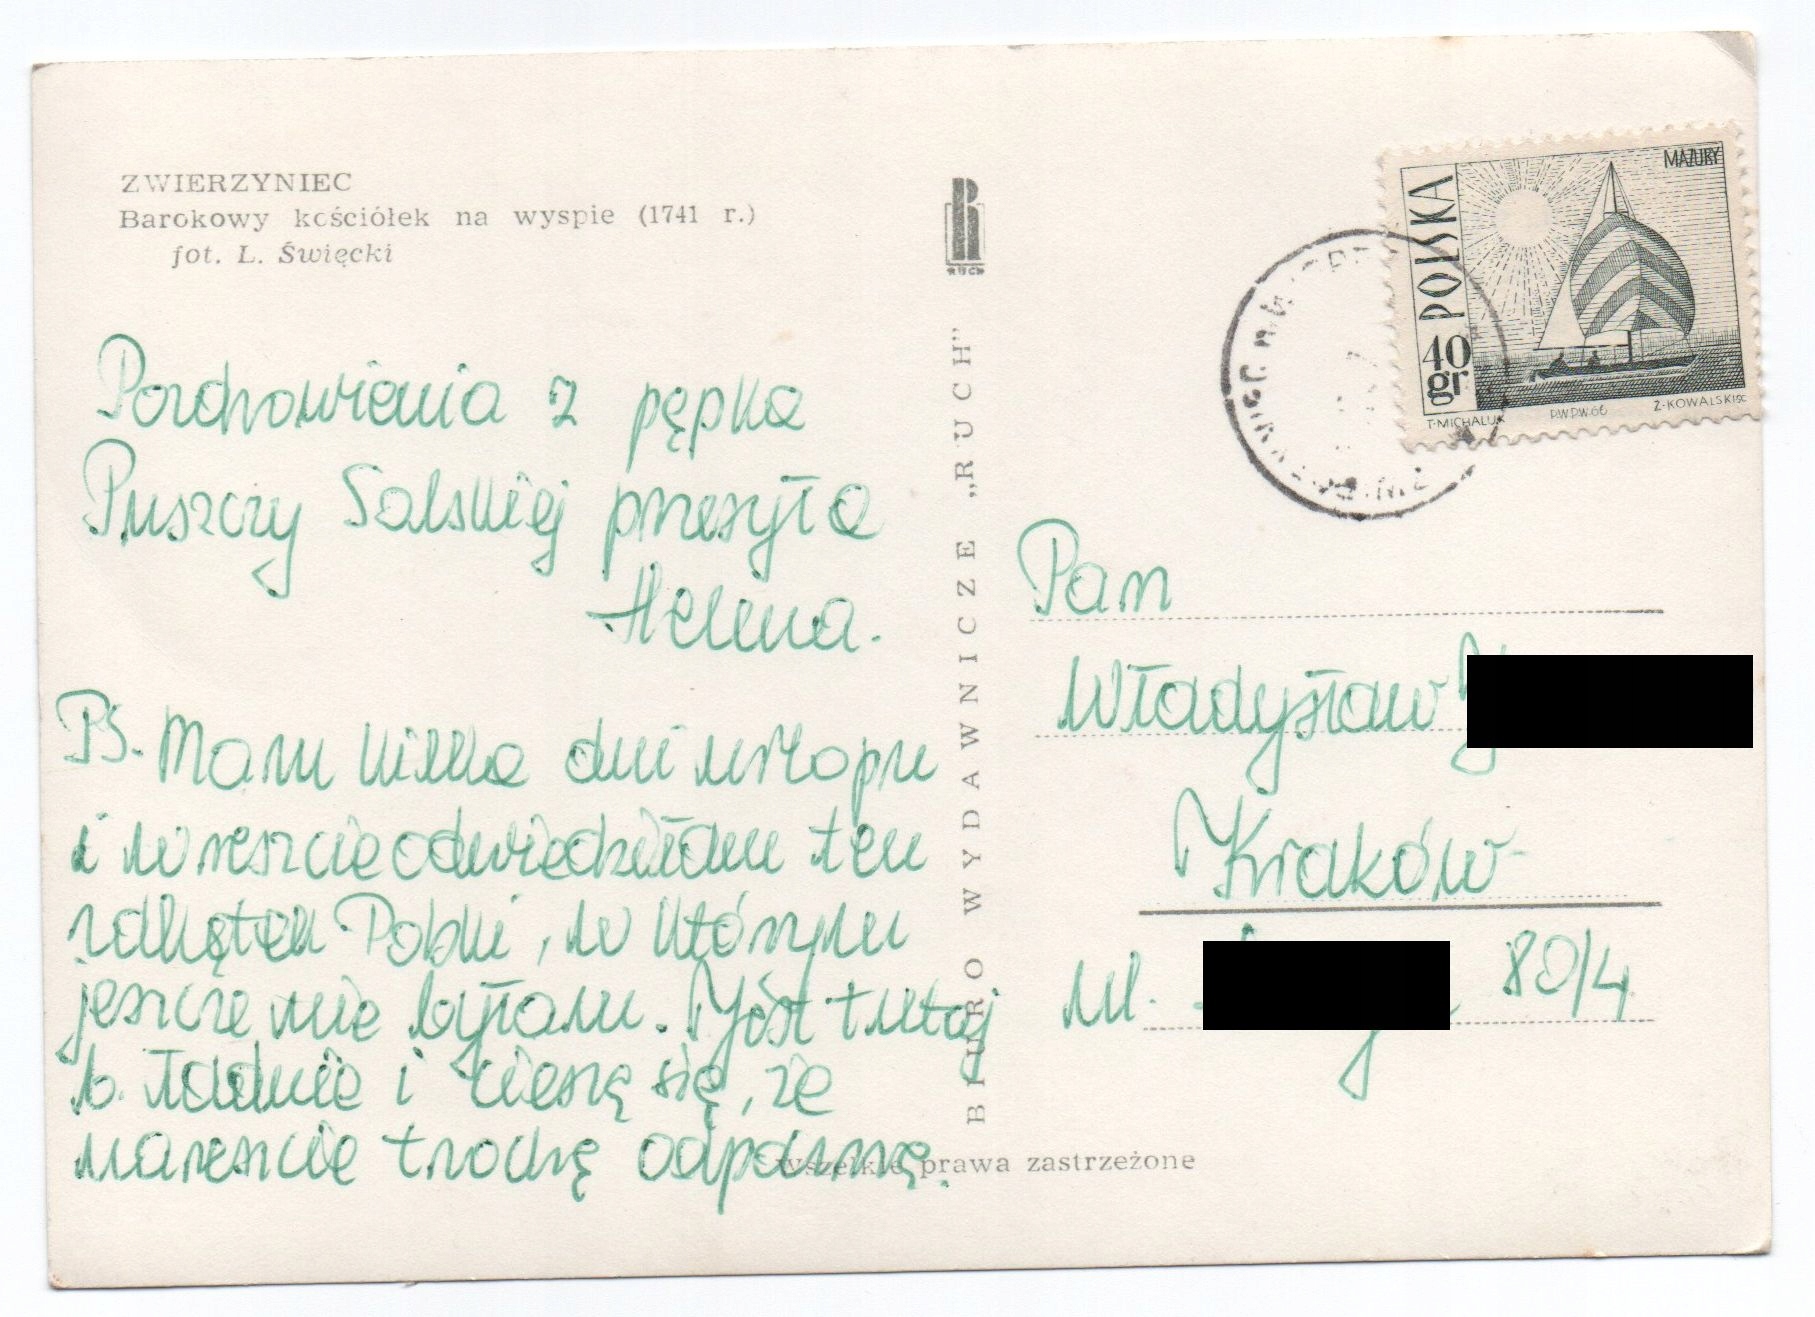 ZWIERZYNIEC
Barokowy kościółek na wyspie (1741 r.)
fot. L. Święcki
Pozdrowienia z pępka
Puszczy Solskiej przesyła
Helena.
PS. Mam kilka dni urlopu
i wreszcie odwiedziłam ten
zakątek Polski, w którym
jeszcze nie byłam. Jest tutaj
b. ładnie i cieszę się, że
nareszcie trochę odpocznę.
RUCH
BIURO WYDAWNICZE „RUCH”
Wszelkie prawa zastrzeżone
POLSKA
MAZURY
40 gr
T·MICHALUK PWPW·66 Z·KOWALSKI SC
Pan
Władysław
Kraków
ul. 80/4